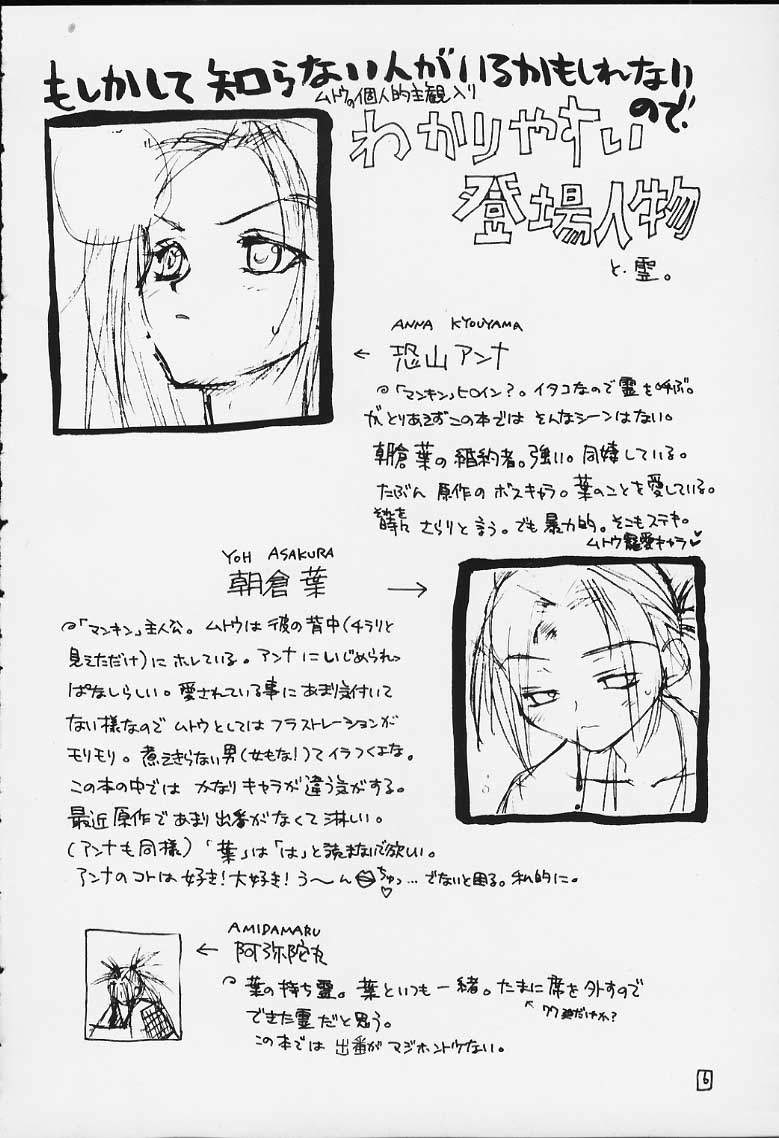 もしかして知らない人がいるかもしれない
ので!
ムトウの個人的主観入り
わかりやすい
登場人物
と・霊。
ANNA KYOUYAMA
← 恐山アンナ
◎「マンキン」ヒロイン?。イタコなので霊を呼ぶ。
がとりあえずこの本ではそんなシーンはない。
朝倉葉の婚約者。強い。同棲している。
たぶん原作のボスキャラ。葉のことを愛している。
それを時々さらりと言う。でも暴力的。そこもステキ。
ムトウ寵愛キャラ♥
YOH ASAKURA
朝倉葉 →
◎「マンキン」主人公。ムトウは彼の背中(チラリと
見えただけ)にホレている。アンナにいじめられっ
ぱなしらしい。愛されている事にあまり気付いて
ない様なのでムトウとしてはフラストレーションが
モリモリ。煮えきらない男(女もな!)てイラつくよな。
この本の中ではかなりキャラが違う気がする。
最近原作であまり出番がなくて淋しい。
(アンナも同様)「葉」は「は」と読まないで欲しい。
アンナのコトは好き!大好き!う〜んちゅっ♡…でないと困る。私的に。
AMIDAMARU
← 阿弥陀丸
◎葉の持ち霊。葉といつも一緒。たまに席を外すので
できた霊だと思う。
この本では出番がマジホントウない。
6